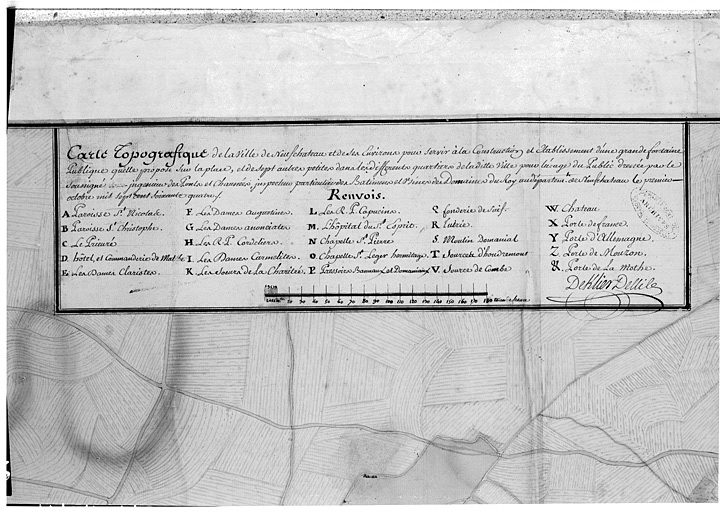 Carte Topografique de la Ville de Neufchateau et de ses Environs pour servir à la Construction et Etablissement d'une grande fontaine
Publique quelle propose sur la place, et de sept autres petites dans les differents quartiers de la ditte Ville pour l'usage du Public dressée par le
Soussigné ingenieur des Ponts et Chaussées, inspecteur particulier des Batiments et Usines des Domaines du Roy au departemt. de Neufchateau le premier
octobre mil sept cent soixante quatre
Renvois.
A Paroisse St. Nicolas.
B Paroisse St. Christophe.
C Le Prieuré
D hôtel et Commanderie de Malthe
E Les Dames Claristes
F Les Dames Augustines
G Les Dames anonciates
H Les R. P. Cordeliers
I Les Dames Carmelites
K Les Soeurs de la Charitée
L Les R. P. Capucins.
M L'hôpital du St. Esprit.
N Chapelle St. Pierre
O Chapelle St. Leger hermitage
P Pressoirs Bannaux et Domaniaux
Q fonderie de Suif.
R tuerie
S Moulin Domanial
T Source de
V Source de Combe
W. Chateau
X Porte de france.
Y Porte d'Allemagne.
Z Porte de Mouzon.
& Porte de La Mothe.
10 20 30 40 50 60 70 80 90 100 110 120 130 140 150 160 170 180